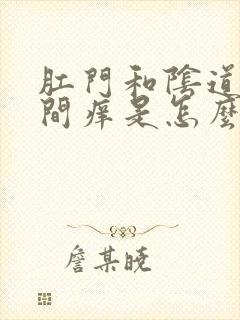 肛門和陰道
間癢是怎麼
詹某曉